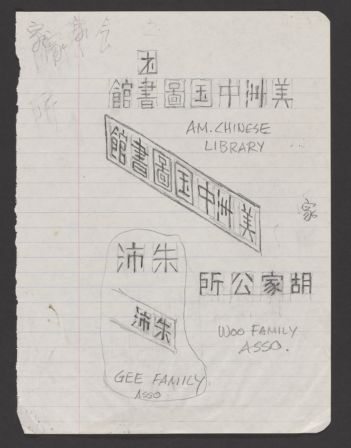 家
家
公
所
美洲中国圖書館
AM. CHINESE
LIBRARY
美洲中国圖書館
家
朱沛
朱沛
GEE FAMILY
ASSO
胡家公所
WOO FAMILY
ASSO.